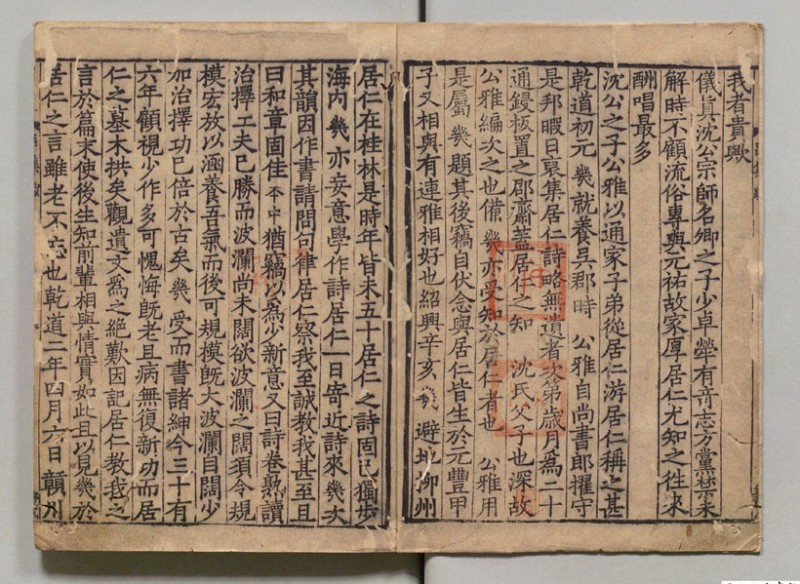 我者貴歟
儀眞沈公宗師名卿之子少卓犖有竒志方黨禁未
解時不顧流俗專與元祐故家厚居仁尤知之往來
酬唱最多
沈公之子公雅以通家子弟從居仁游居仁稱之甚
乾道初元 幾就養吳郡時 公雅自尚書郎擢守
是邦暇日裒集居仁詩略無遺者次第歲月爲二十
通鋟板置之郡齋蓋居仁之知 沈氏父子也深故
公雅編次之也備 幾亦受知於居仁者也 公雅用
是屬 幾題其後竊自伏念與居仁皆生於元豐甲
子又相與有連雅相好也紹興辛亥 幾 避地柳州
居仁在桂林是時年皆未五十居仁之詩固已獨步
海内 幾 亦妄意學作詩居仁一日寄近詩來 幾次
其韻因作書請問句律居仁察我至誠敎我甚至且
曰和章固佳 本中 猶竊以爲少新意又曰詩卷熟讀
治擇工夫已勝而波瀾尚未闊欲波瀾之闊須令規
模宏放以涵養吾氣而後可規模旣大波瀾自闊少
加治擇功已倍於古矣 幾 受而書諸紳今三十有
六年顧視少作多可愧悔旣老且病無復新功而居
仁之墓木拱矣觀遺文爲之絶歎因記居仁敎我之
言於篇末使後生知前輩相與情實如此且以見幾於
居仁之言雖老不忘也乾道二年四月六日贛川